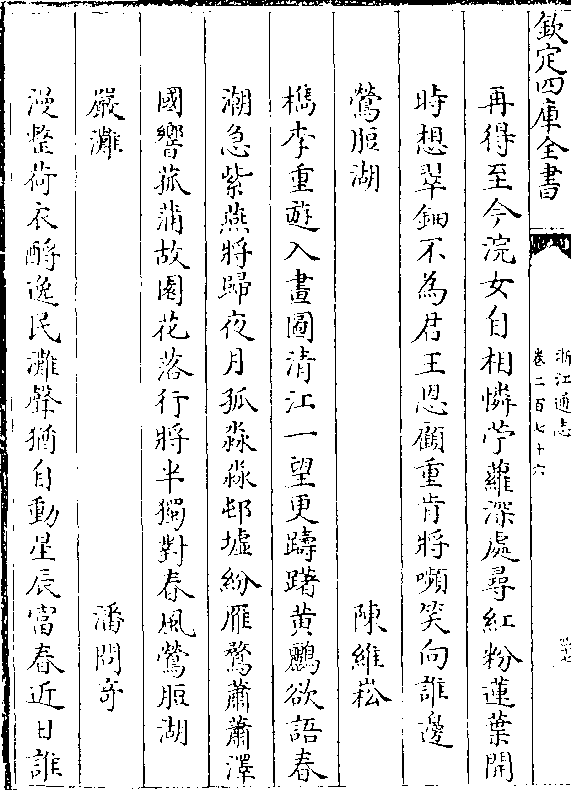 欽定四庫全書
浙江通志
卷二百七十六
再得至今浣女自相憐苧蘿深處尋紅粉蓮葉開
時想翠鈿不為君王恩顧重肯將嚬笑向誰邊
鶯脰湖 陳維崧
檇李重遊入畫圖清江一望更躊躇黄鸝欲語春
潮急紫燕將歸夜月孤淼淼邨墟紛雁鶩蕭蕭澤
國響菰蒲故園花落行將半獨對春風鶯脰湖
嚴灘 潘問奇
漫整荷衣酹逸民灘聲猶自動星辰富春近日誰